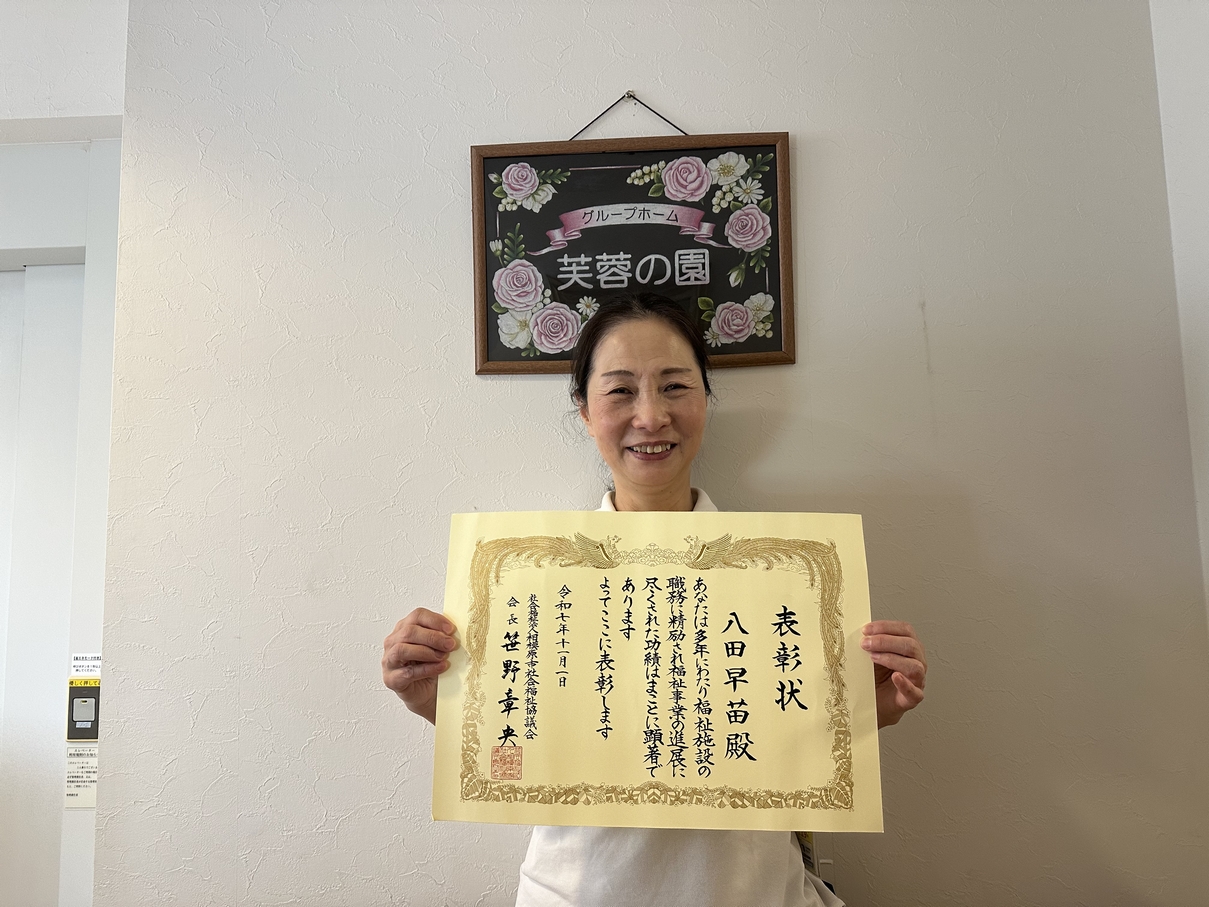 グループホーム
芙蓉の園
表彰状
八田早苗殿
あなたは多年にわたり福祉施設の
職務に精励され福祉事業の進展に
尽くされた功績はまことに顕著で
あります
よってここに表彰します
令和七年十一月一日
社会福祉法人相模原市社会福祉協議会
会長 笹野章央